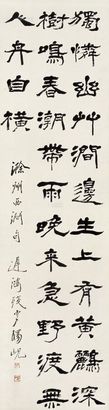 獨憐幽艸澗邊生上有黃鸝深
樹鳴春潮帶雨晚來急野渡無
人舟自橫
滁州西澗句 遲鴻 楊峴